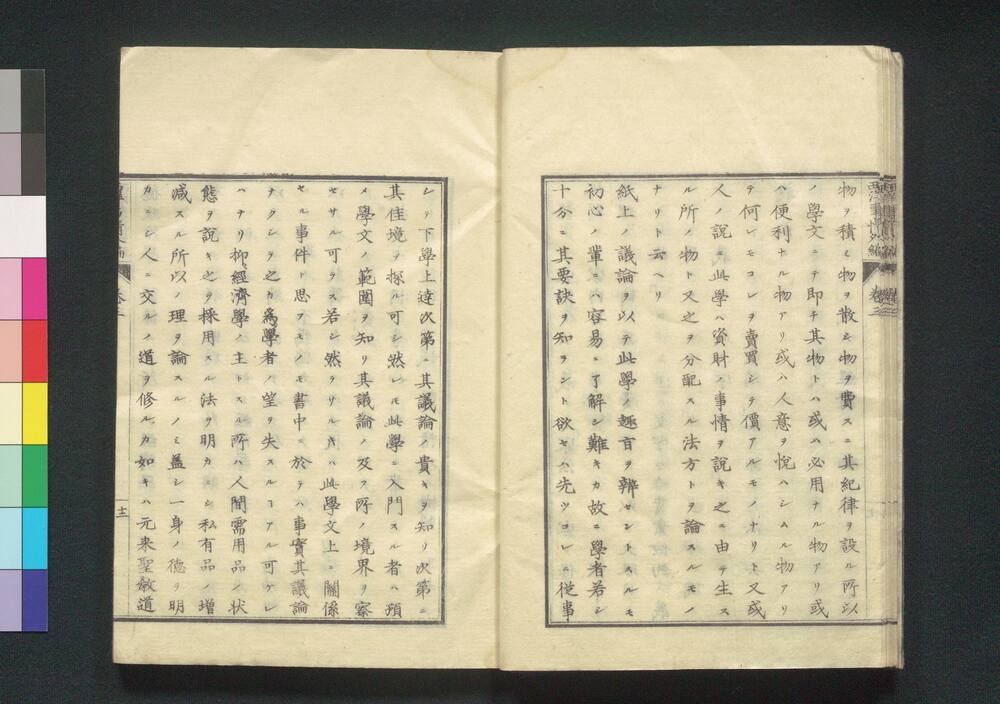 物ヲ積ミ物ヲ散シ物ヲ費スニ其紀律ヲ設ル所以
ノ學文ニテ即チ其物トハ或ハ必用ナル物アリ或
ハ便利ナル物アリ或ハ人意ヲ悅ハシムル物アリ
テ何レモコレヲ賣買シテ價アルモノナリト又或
人ノ說ニ此學ハ資財ノ事情ヲ說キ之ニ由テ生ス
ル所ノ物ト又之ヲ分配スル法方トヲ論スルモノ
ナリト云ヘリ
紙上ノ議論ヲ以テ此學ノ趣旨ヲ辨セントスルモ
初心ノ輩ニハ容易ニ了解シ難キカ故ニ學者若シ
十分ニ其要訣ヲ知ラント欲セハ先ツコレニ從事
シテ下學上達次第ニ其議論ノ貴キヲ知リ次第ニ
其佳境ヲ探ル可シ然レ𪜈此學ニ入門スル者ハ預
メ學文ノ範圍ヲ知リ其議論ノ及フ所ノ境界ヲ察
セサル可ラス若シ然ラサル片ハ此學文上ニ關係
セル事件ト思フモノモ書中ニ於テハ事實其議論
ナクシテ之カ爲學者ノ望ヲ失スルヿアル可ケレ
ハナリ抑經濟學ノ主トスル所ハ人間需用品ノ狀
態ヲ說キ之ヲ採用スル法ヲ明カニシ私有品ノ增
減スル所以ノ理ヲ論スルノミ蓋シ一身ノ德ヲ明
カニシ人ニ交ルノ道ヲ修ルカ如キハ元來聖敎道
十二